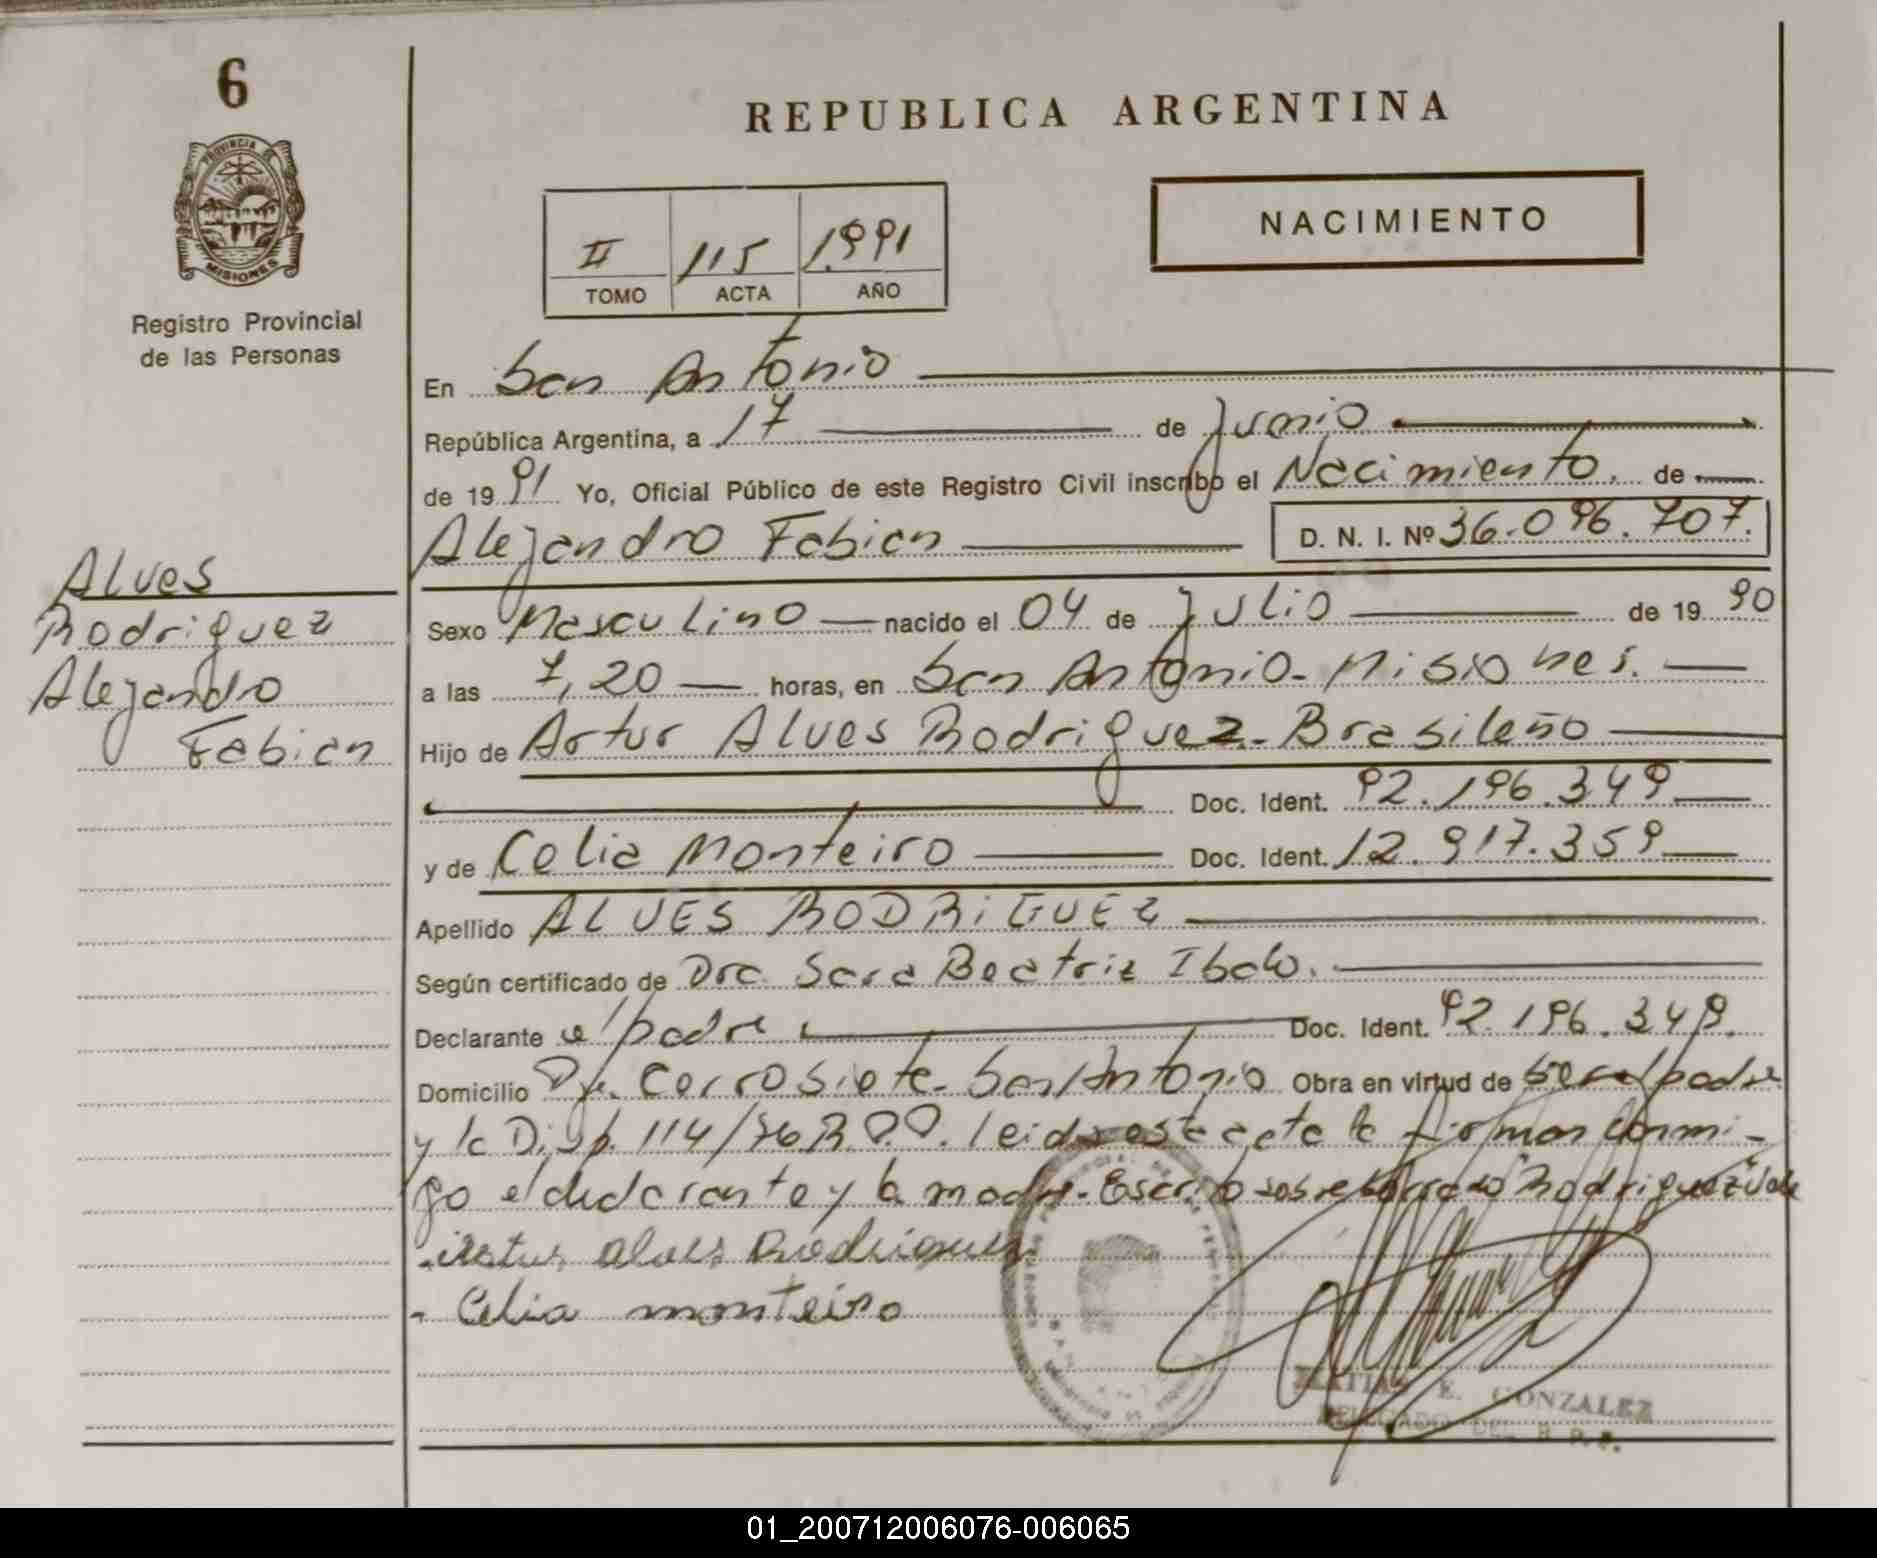 6
REPUBLICA ARGENTINA
PROVINCIA DE
MISIONES
Registro Provincial
de las Personas
NACIMIENTO
II 115 1.991
TOMO ACTA AÑO
En San Antonio
República Argentina, a 17 de Junio
de 1991 Yo, Oficial Público de este Registro Civil inscribo el Nacimiento. de
Alejandro Fabian D. N. I. Nº 36.096.707.
Alves
Rodriguez
Alejandro
Fabian
Sexo Masculino nacido el 04 de Julio de 1990
a las 7,20 horas, en San Antonio-Misiones.
Hijo de Artur Alves Rodriguez-Brasileño
Doc. Ident. 92.196.349
y de Celia Monteiro Doc. Ident. 12.917.359
Apellido ALVES RODRIGUEZ
Según certificado de Dra. Sara Beatriz
Declarante el padre Doc. Ident. 92.196.349.
Domicilio Cerro Siete-San Antonio Obra en virtud de ser el padre
y la Disp. 114/76 R.P.P. leida esta acta la firman conmi-
go el declarante y la madre-Escrito sobre borrado "Rodriguez" Vale
Artur Alves Rodrigues
- Celia monteiro
MATIAS E. GONZALEZ
DELEGADO DEL R.P.P.
01_200712006076-006065